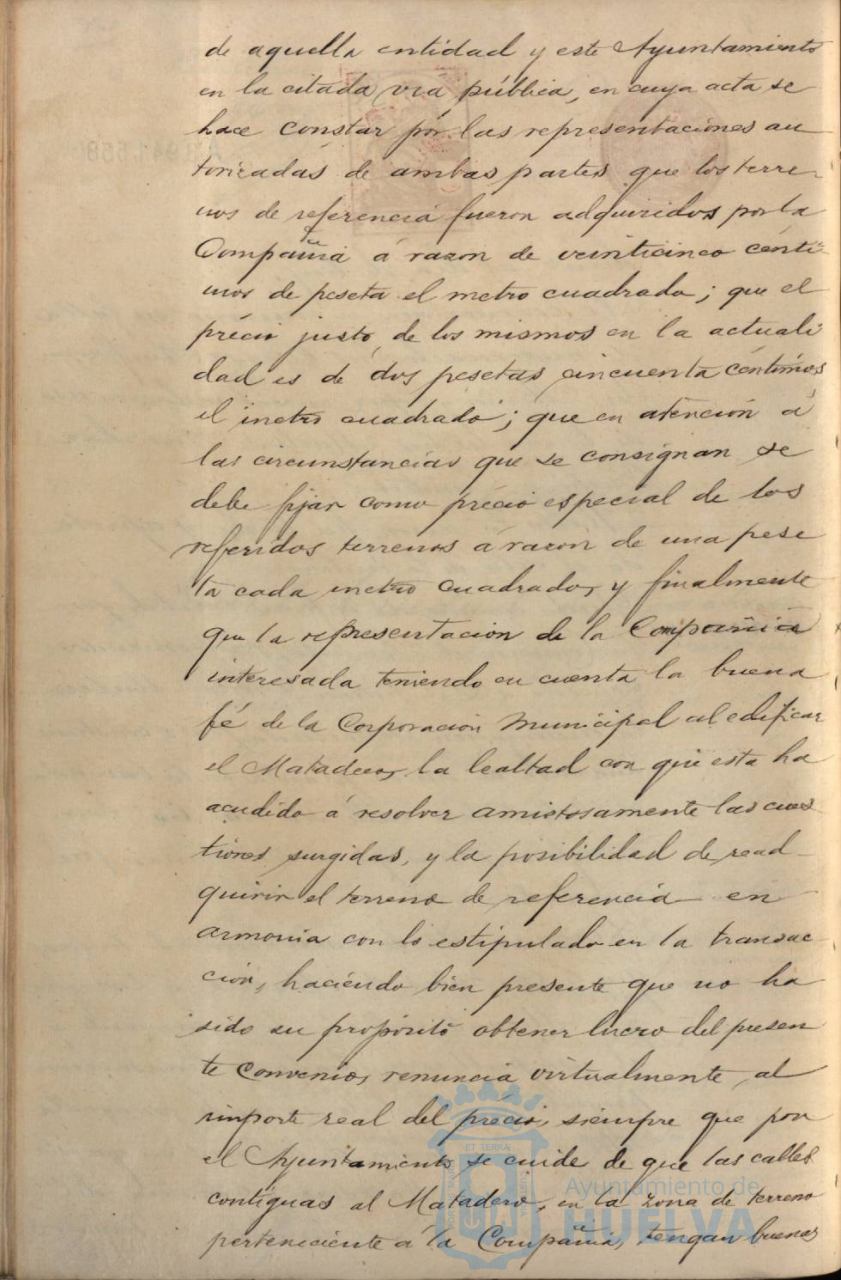 de aquella entidad y este Ayuntamiento
en la citada via pública, en cuya acta se
hace constar por las representaciones au
torizadas de ambas partes que los terre-
nos de referencia fueron adquiridos por la
Compañia á razon de veinticinco cénti-
mos de peseta el metro cuadrado; que el
précio justo de los mismos en la actuali
dad es de dos pesetas cincuenta céntimos
el metro cuadrado; que en atención á
las circunstancias que se consignan se
debe fijar como précio especial de los
referidos terrenos á razon de una pese
ta cada metro cuadrado, y finalmente
que la representacion de la Compañia
interesada teniendo en cuenta la buena
fé de la Corporacion Municipal al edificar
el Matadero, la lealtad con que esta ha
acudido á resolver amistosamente las cues
tiones surgidas, y la posibilidad de read-
quirir el terreno de referencia en
armonia con lo estipulado en la transac-
ción, haciendo bien presente que no ha
sido su propósito obtener lucro del presen
te Convenio, renuncia virtualmente al
importe real del precio, siempre que por
el Ayuntamiento se cuide de que las calles
contiguas al Matadero, en la zona de terreno
perteneciente á la Compañia, tengan buenas
Ayuntamiento de
HUELVA